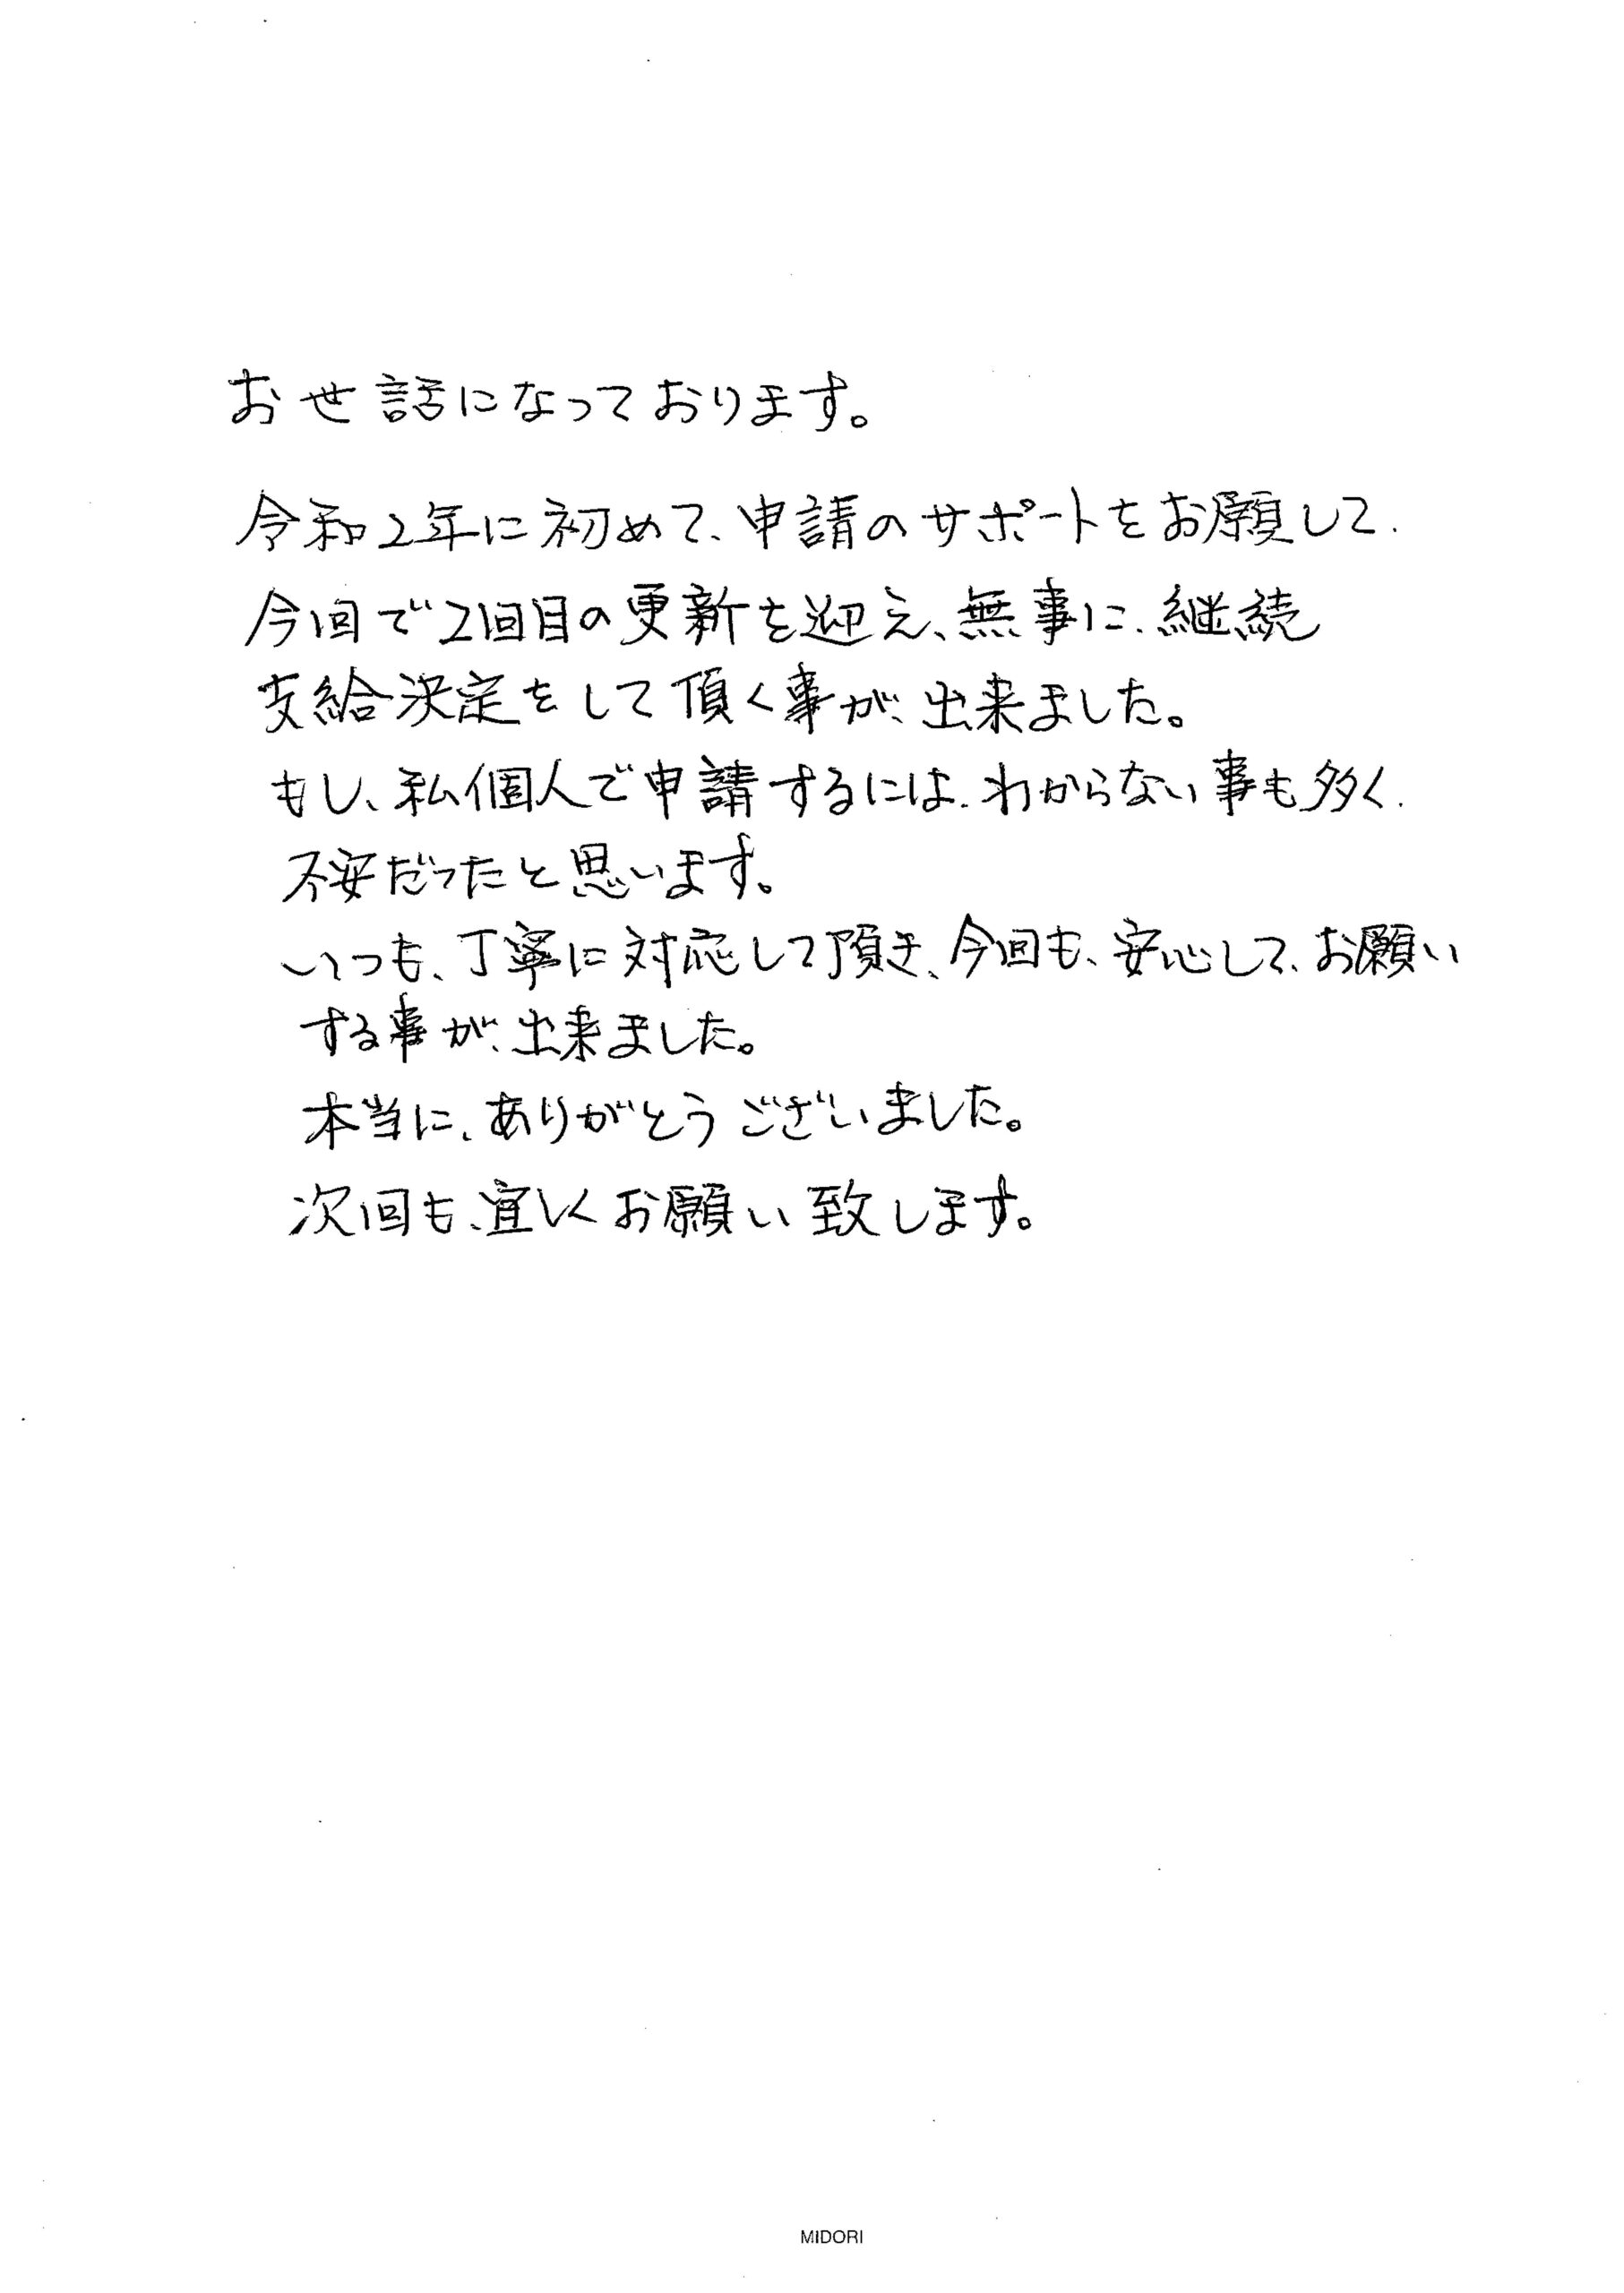 おせ話になっております。
令和2年に初めて、申請のサポートをお願して、
今回で2回目の更新を迎え、無事に、継続
支給決定をして頂く事が、出来ました。
もし、私個人で申請するには、わからない事も多く、
不安だったと思います。
いつも、丁寧に対応して頂き、今回も、安心して、お願い
する事が、出来ました。
本当に、ありがとうございました。
次回も、宜しくお願い致します。
MIDORI